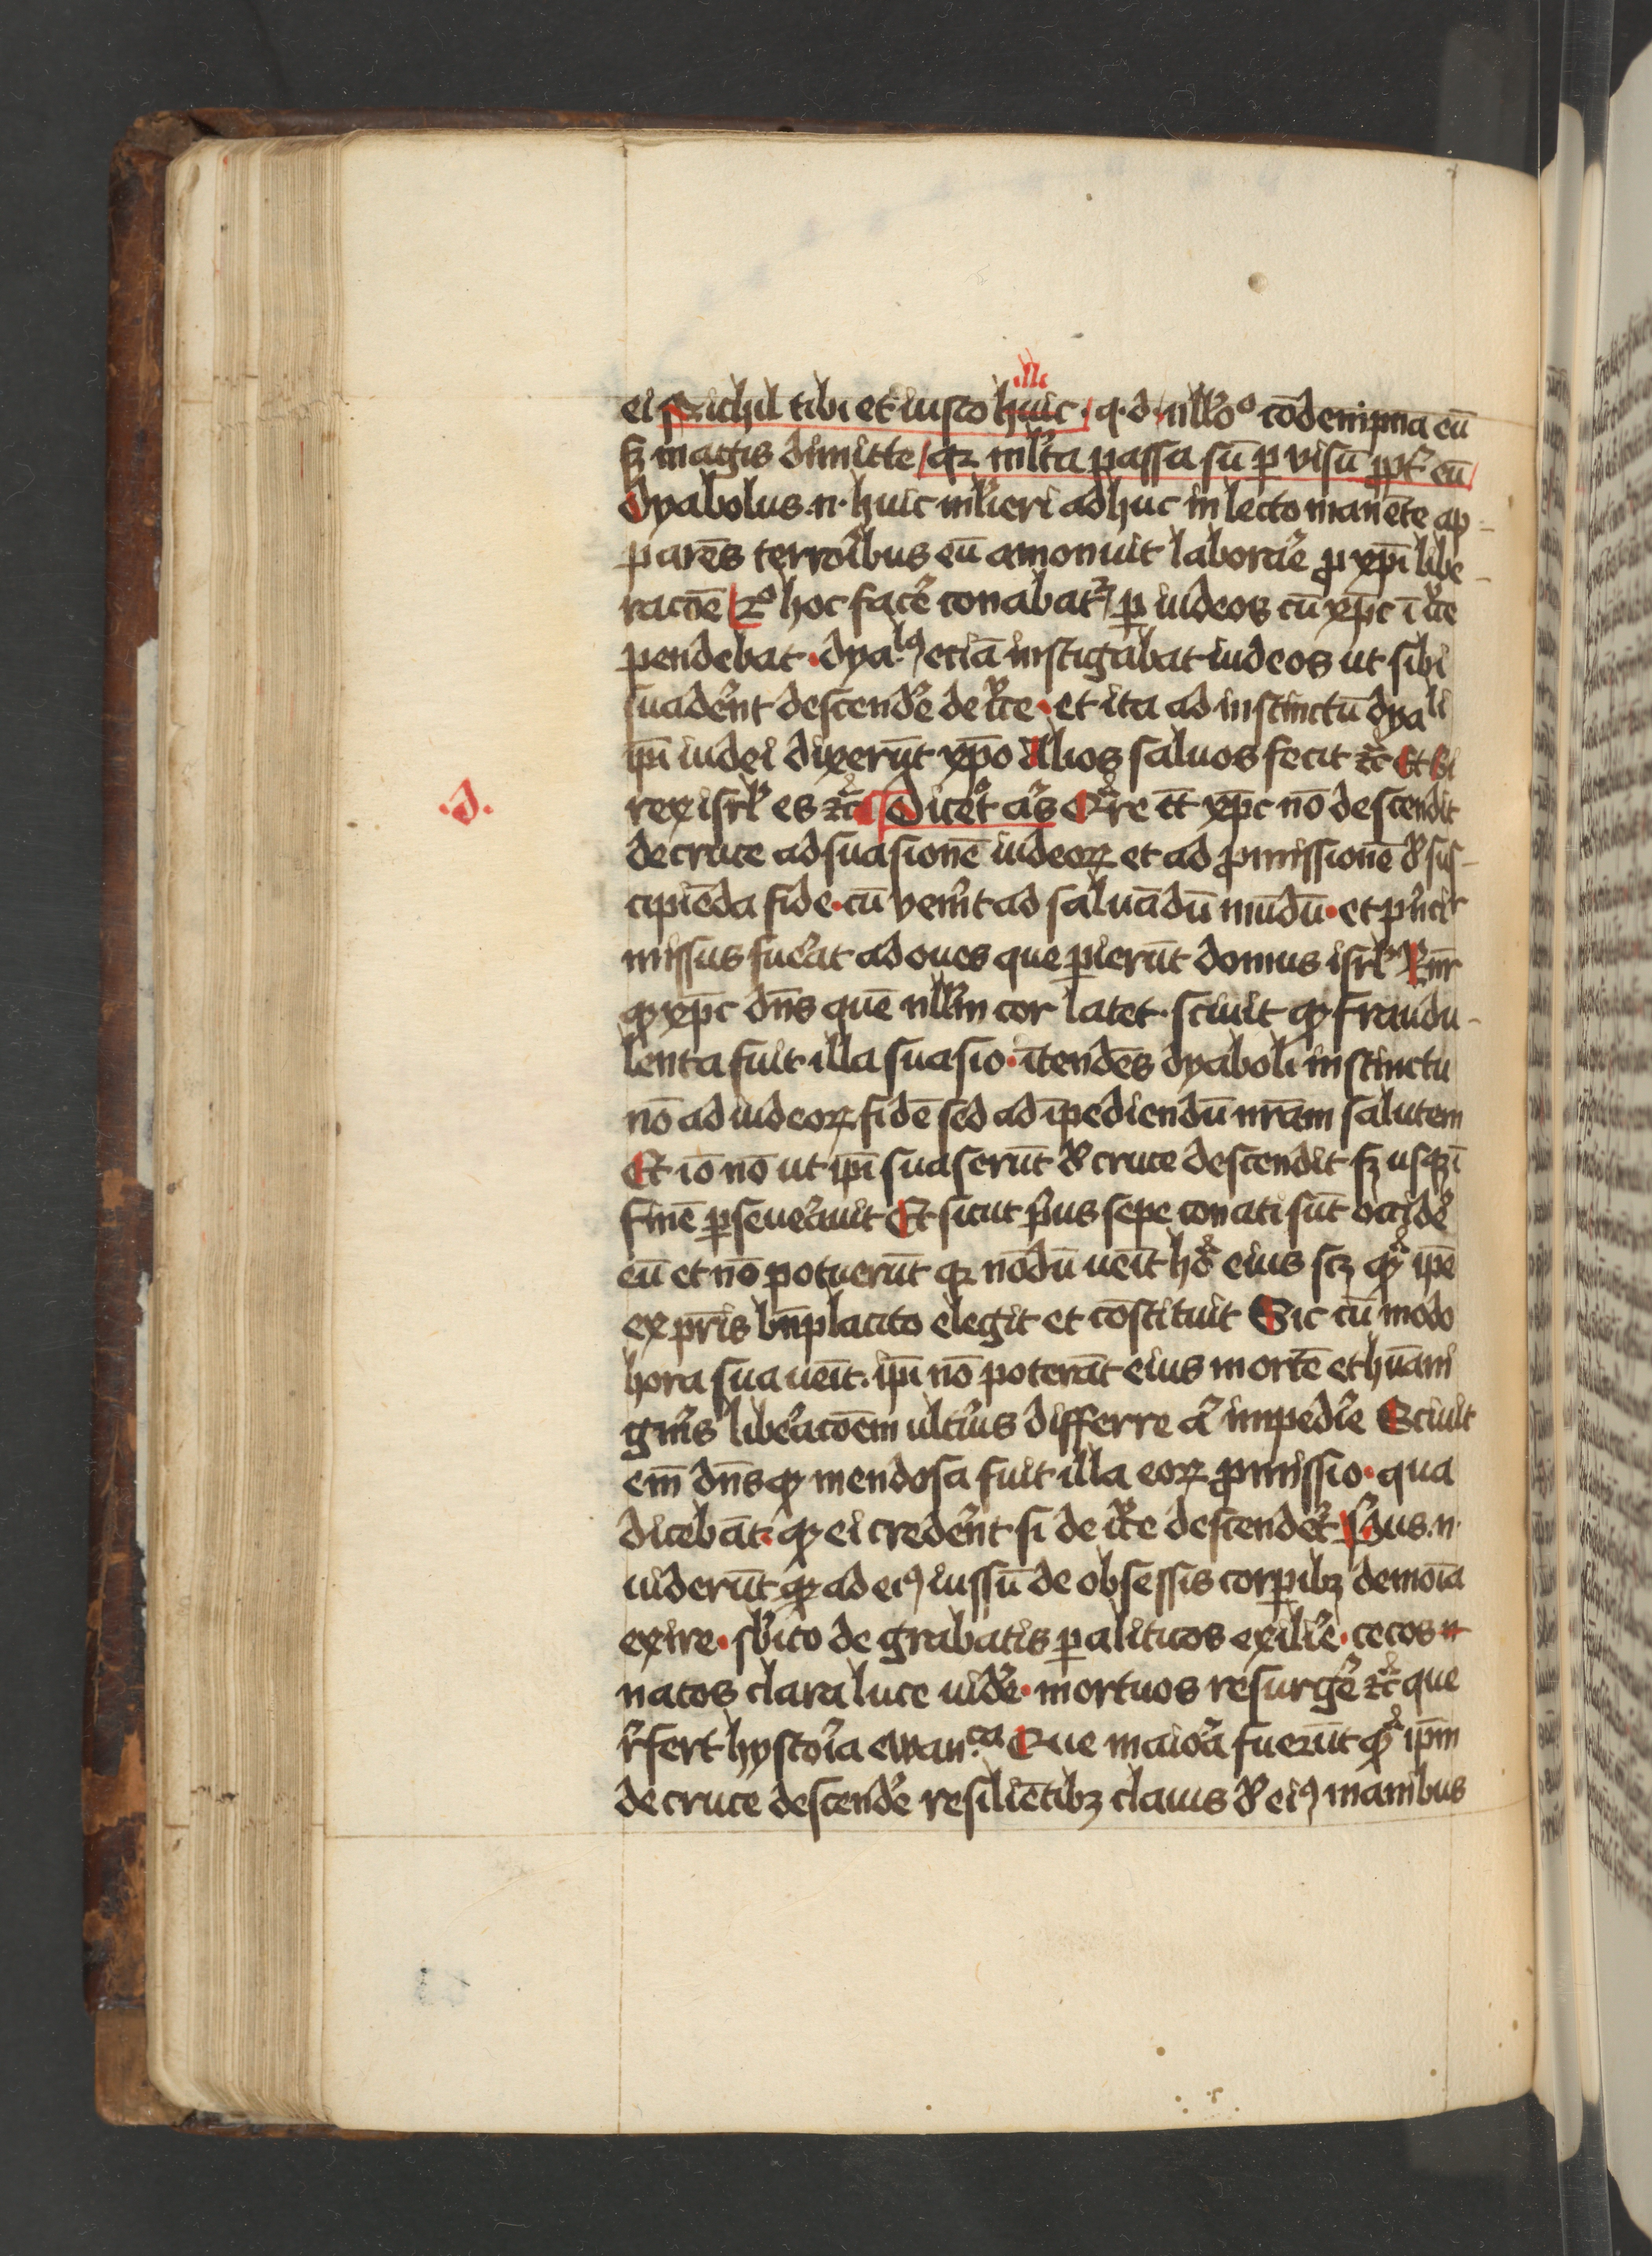 illi
ei Nichil tibi et iusto huic · q · d · nllo° cōdempna eū
sꝫ magis dimitte / qꝛ mlta passa sū ꝑ visū ꝓpt eū /
dyabolus .n. huic mlieri adhuc in lecto manēte ap-
parēs terroribus eū amonuit laborare ꝓ xp̄i libe-
racōe / hoc facere conabatr ꝑ iudeos cū xp̄c ī cͬce
pendebat · dyalꝰ eciā instigabat iudeos ut sibi
suaderent descendere de cͬce · et ita ad instinctū dyali
ip̄i iudei dixerūt xp̄o Alios saluos fecit ⁊c̄ Et si
·d·
rex isrl es ⁊c̄ ¶ Diceret aͥs Qͣre tͨ xp̄c nō descendit
de cruce ad suasionē iudeoꝝ et ad ꝓmissionē de sus-
cipiēda fide · cū venit ad saluādū mūdū · et pͥncͥr
missus fuerat ad oues que ꝑierūt domus isrl Rͦnr
ꝙ xp̄c dn̄s quē nllm cor latet · sciuit ꝙ fraudu-
lenta fuit illa suasio · ītendēs dyaboli instinctu
nō ad iudeoꝝ fidē sed ad īpediendū nr̄am salutem
Et iō nō ut ip̄i suaserūt de cruce descendit sꝫ usqꝫ ī
finē ꝑseuerauit Et sicut pͥus sepe conati sūt occidere
eū et nō potuerūt qꝛ nōdū ueīt hoͣ eius scꝫ qͣ ip̄e
ex pr̄is bn̄placito elegit et cōstituit Sic cū modo
hora sua ueīt · ip̄i nō poterāt eius mortē et hūani
gnͥis liberacōem ultͥus differre aͬ impedire Sciuit
em̄ dn̄s ꝙ mendosa fuit illa eoꝝ ꝓmissio · qua
dicebāt · ꝙ ei crederent si de cͬce descenderet .n.
uiderūt ad eiꝰ iussū de obsessis corꝑibꝫ demoīa
exire · sbito de grabatis paliticos exilire · cecos
natos clara luce uidere · mortuos resurgere ⁊c̄ que
rͤfert hystoria ewan.ca Que maiora fuerūt qͣ ip̄m
de cruce descendere resiliētibꝫ clauis de eiꝰ manibus